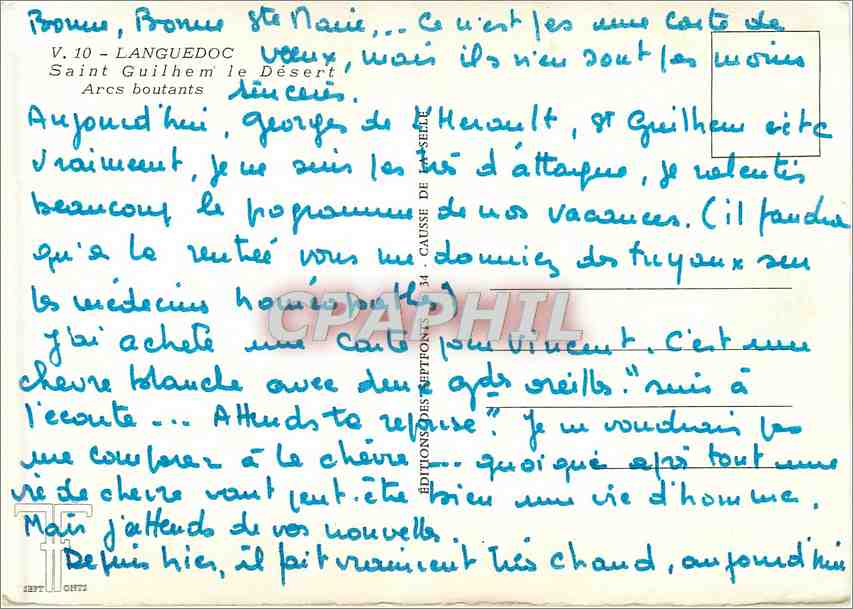 Bonne, Bonne Ste Marie,... Ce n'est pas une carte de
V. 10 - LANGUEDOC
voeux, mais ils n'en sont pas moins
Saint Guilhem le Désert
Arcs boutants
sincères.
Aujourd'hui, Georges de l'Herault, St Guilhem etc
vraiment, je ne suis pas très d'attaque, je ralentis
beaucoup le pogramme de nos vacances. (il faudra
qu'à la rentrée vous me donniez des tuyaux sur
les médecins homéopathes)
J'ai acheté une carte pour Vincent. C'est une
chèvre blanche avec deux gdes oreilles. "suis à
l'ecoute... Attends ta reponse". Je ne voudrais pas
me comparer à la chèvre ... quoique après tout une
vie de chevre vaut peut-être bien une vie d'homme.
Mais j'attends de vos nouvelles.
Depuis hier, il fait vraiment très chaud, aujourd'hui
EDITIONS DES SEPTFONTS 34 - CAUSSE DE LA SELLE
CPAPHIL
SEPT FONTS